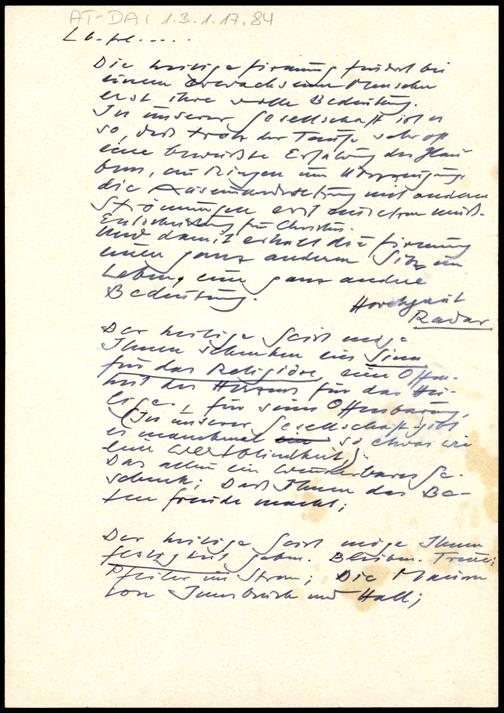 AT-DAI 1.3.1.17.84
Lb. fe.....
Die heilige Firmung findet bei
einem erwachsenen Menschen
erst ihre volle Bedeutung.
In unserer Gesellschaft ist es
so, daß trotz der Taufe sehr oft
eine bewußte Erfahrung des Glau-
bens, ein Ringen um Überzeugung,
die Auseinandersetzung mit anderen
Strömungen erst
Entscheidung für Christus.
Und damit erhält die Firmung
einen ganz anderen Sitz im
Leben, eine ganz andere
Bedeutung.
Horchgerät
Radar
Der heilige Geist möge
Ihnen schenken ein Sinn
für das Religiöse, eine Offen-
heit des Herzens für das Hei-
lige, für seine Offenbarung,
(In unserer Gesellschaft gibt
es manchmal so etwas wie
eine Wertblindheit.)
Das allein ein wunderbares Ge-
schenk; Daß Ihnen das Be-
ten Freude macht;
Der heilige Geist möge Ihnen
Festigkeit geben. Bleiben. Treue;
Pfeiler im Strom; Die
von Innsbruck und Hall;